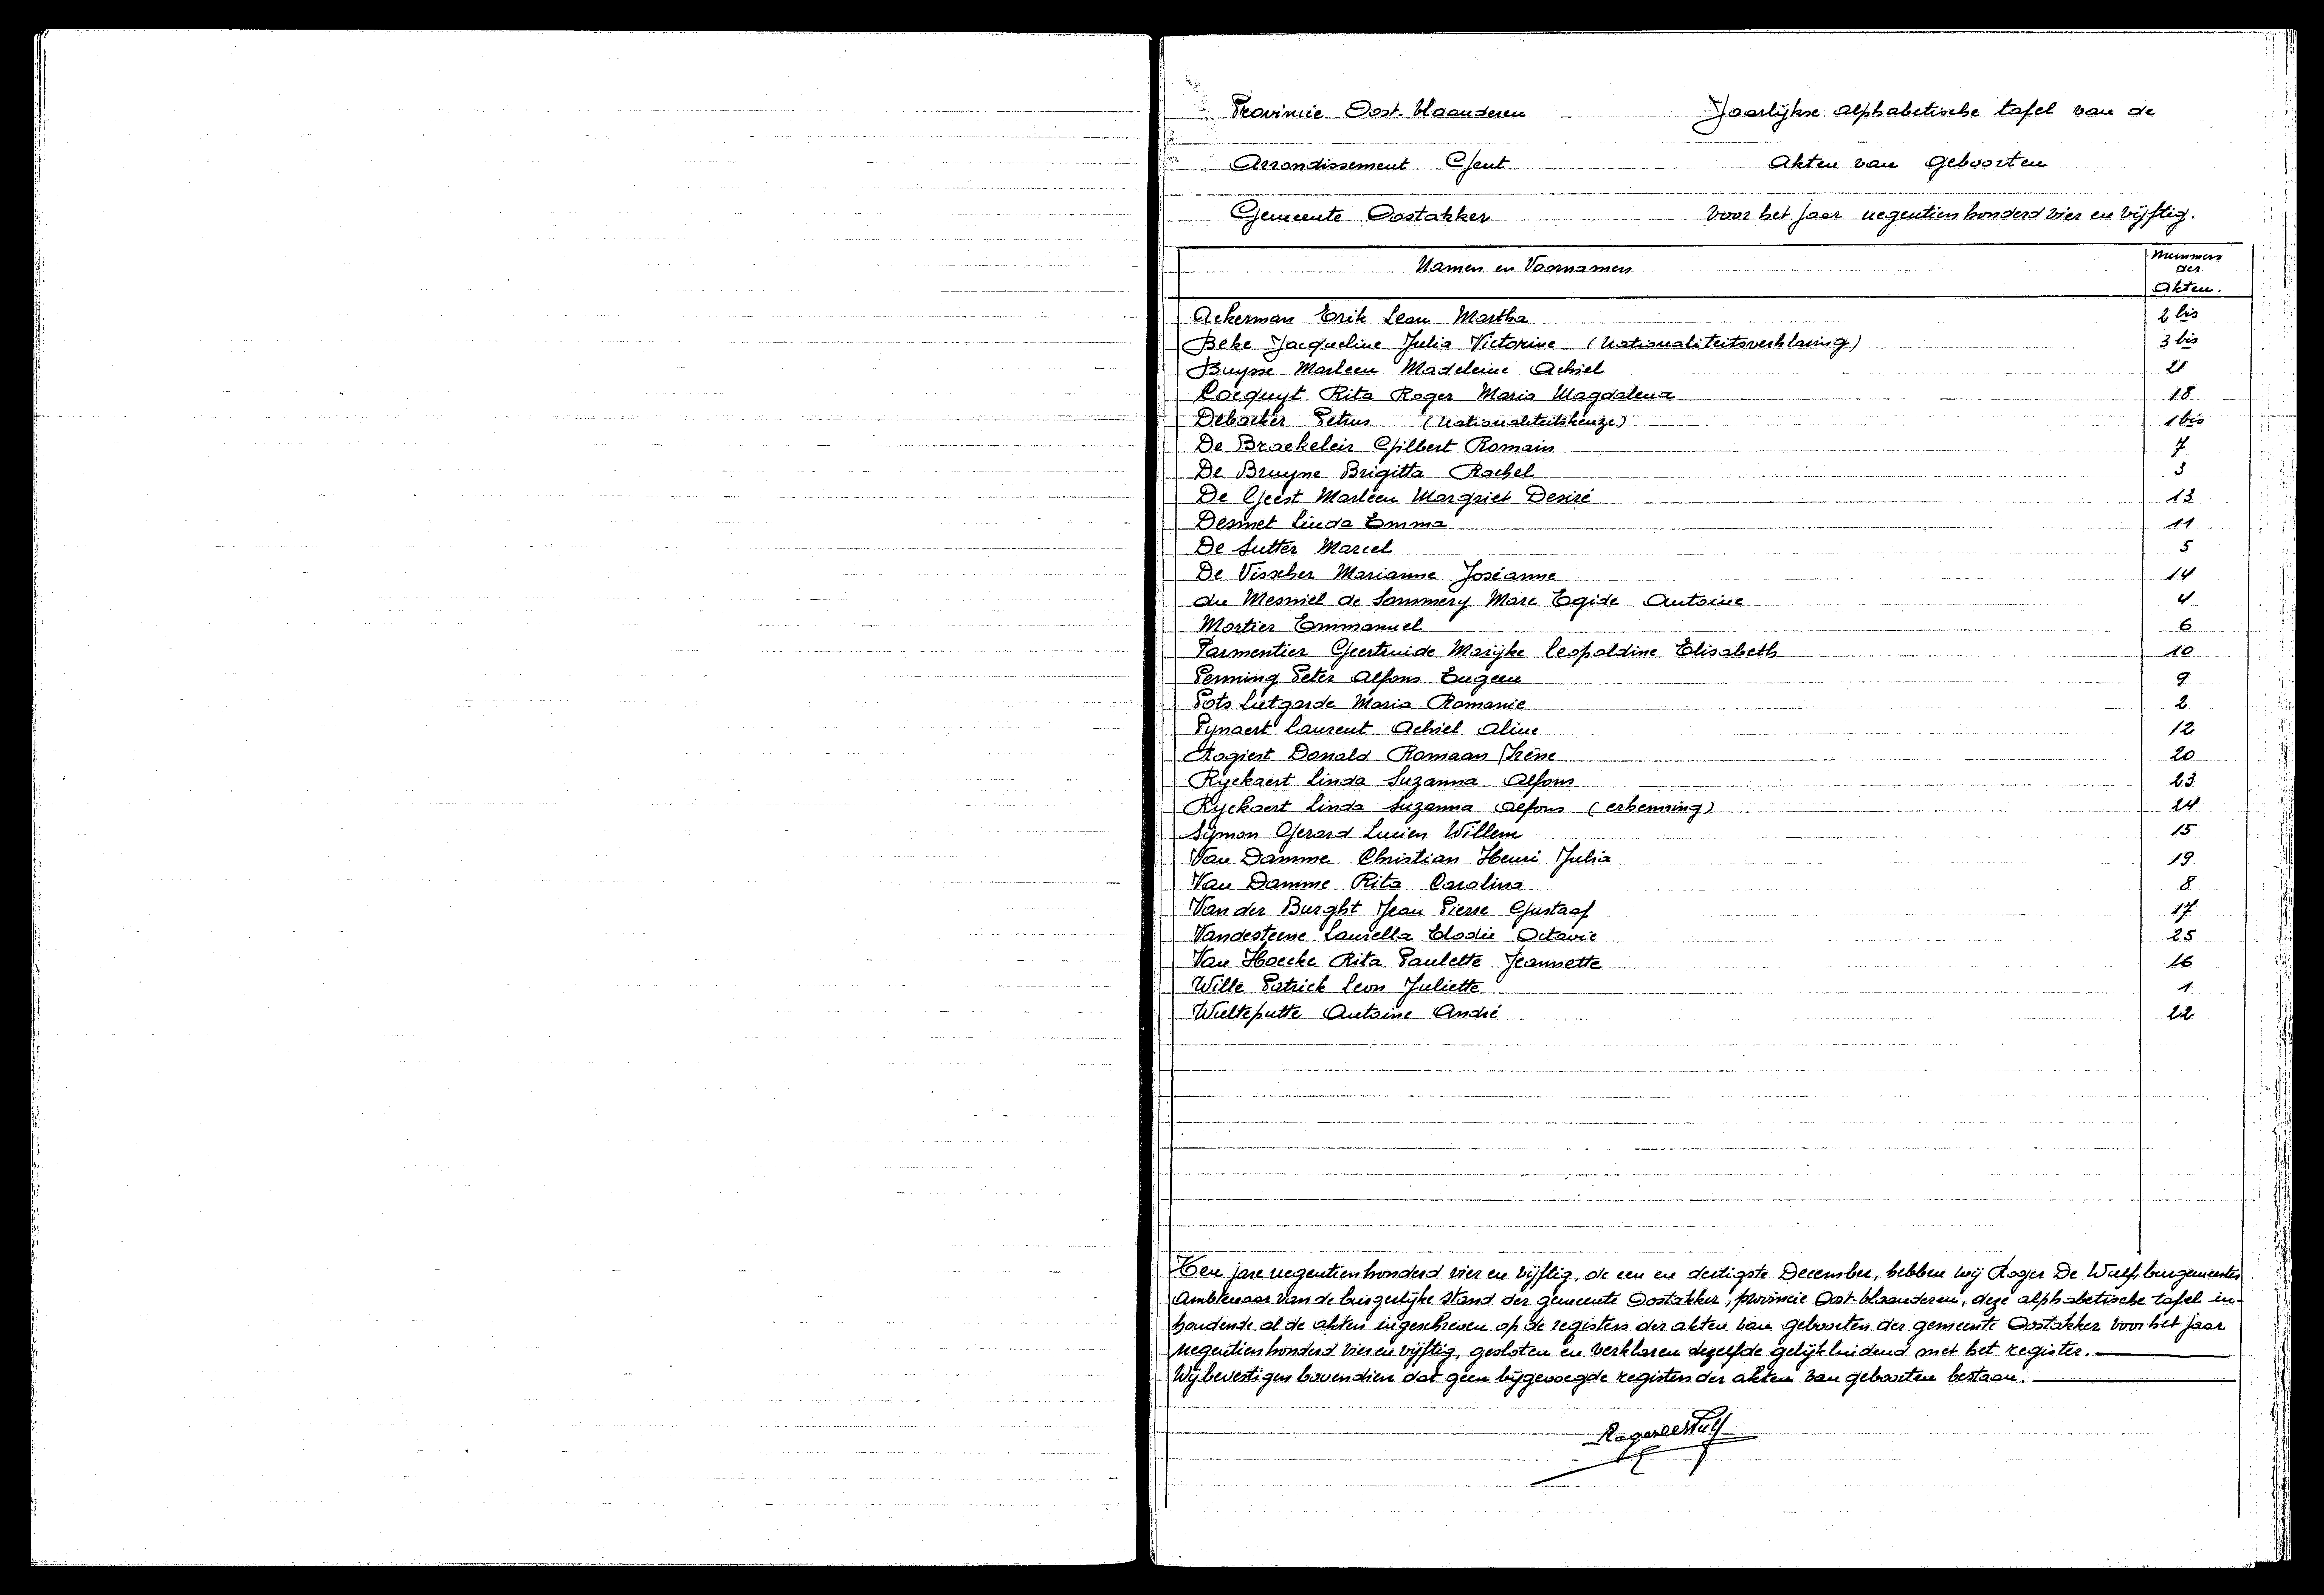 Provincie Oost-Vlaanderen
Jaarlijkse alphabetische tafel van de
Arrondissement Gent
Akten van Geboorten
Gemeente Oostakker
voor het jaar negentien honderd vier en vijftig.
Namen en Voornamen
Nummers
der
Akten.
Ackerman Erik Leon Martha 2 bis
Beke Jacqueline Julia Victorine (Nationaliteitsverklaring) 3 bis
Buysse Marleen Madeleine Achiel 21
Cocquyt Rita Roger Maria Magdalena 18
Debacker Petrus (Nationaliteitskeuze) 1 bis
De Braekeleir Gilbert Romain 7
De Bruyne Brigitta Rachel 3
De Geest Marleen Margriet Desiré 13
Desmet Linda Emma 11
De Sutter Marcel 5
De Visscher Marianne Joséanne 14
du Mesniel de Sommery Marc Egide Antoine 4
Mortier Emmanuel 6
Parmentier Geertruide Marijke Leopoldine Elisabeth 10
Penning Peter Alfons Eugeen 9
Pots Lutgarde Maria Romanie 2
Pynaert Laurent Achiel Aline 12
Rogiest Donald Romaan Irène 20
Ryckaert Linda Suzanna Alfons 23
Ryckaert Linda Suzanna Alfons (erkenning) 24
Symon Gerard Lucien Willem 15
Van Damme Christian Henri Julia 19
Van Damme Rita Carolina 8
Van der Burght Jean Pierre Gustaaf 17
Vandesteene Laurella Elodie Octavie 25
Van Hoecke Rita Paulette Jeannette 16
Wille Patrick Leon Juliette 1
Wulteputte Antoine André 22
Ten jare negentienhonderd vier en vijftig, de een en dertigste December, hebben wij Roger De Wulf burgemeester
Ambtenaar van de burgerlijke stand der gemeente Oostakker, provincie Oost-Vlaanderen, deze alphabetische tafel in-
houdende al de akten ingeschreven op de registers der akten van geboorten der gemeente Oostakker voor het jaar
negentien honderd vier en vijftig, gesloten en verklaren dezelfde gelijkluidend met het register.
Wij bevestigen bovendien dat geen bijgevoegde registers der akten van geboorten bestaan.
Roger De Wulf